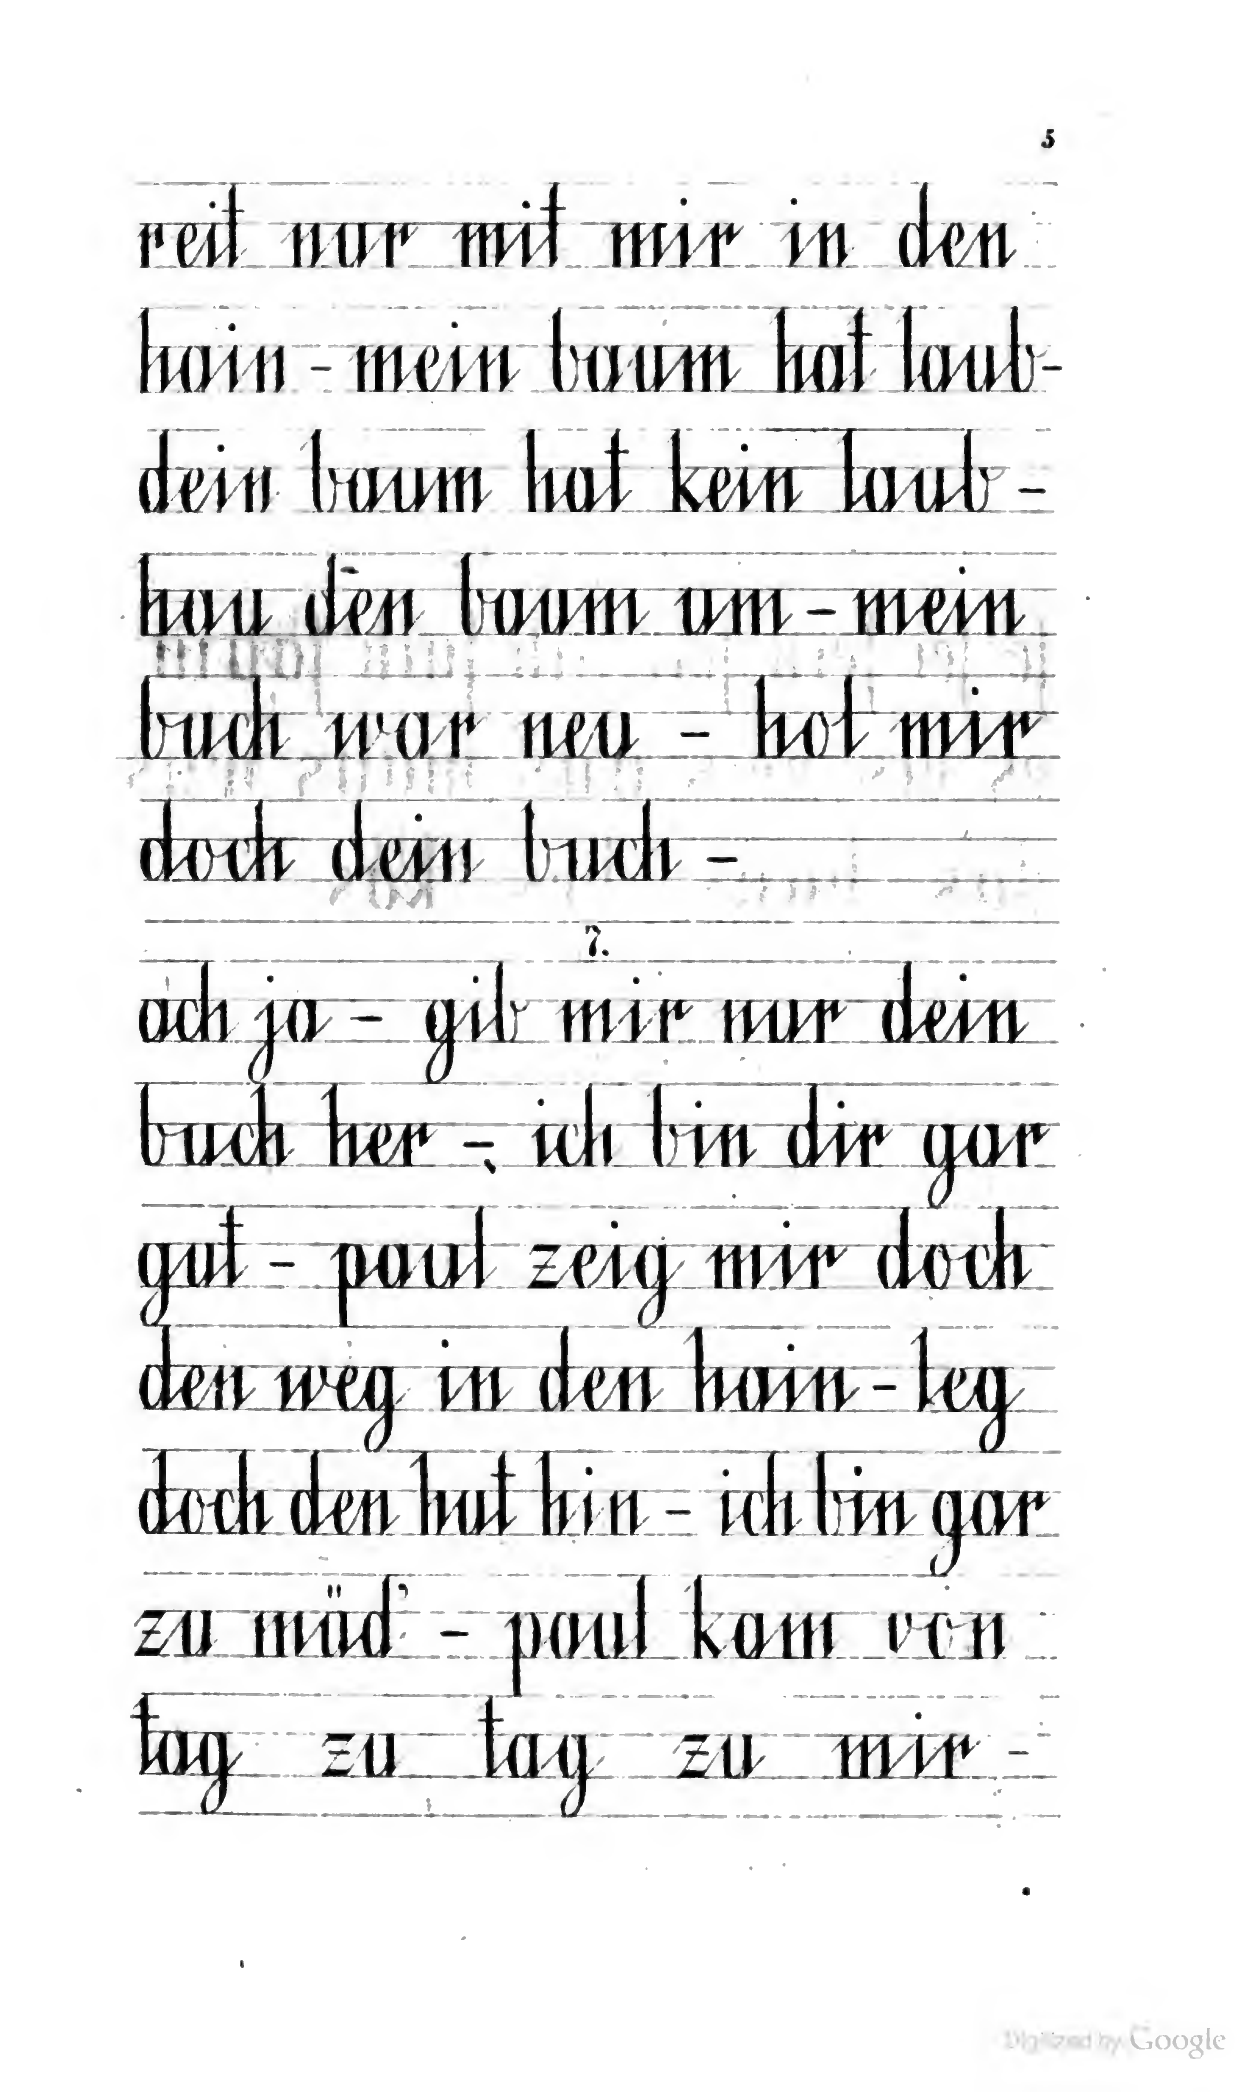 5
reit nur mit mir in den
hain - mein baum hat laub -
dein baum hat kein laub -
hau den baum um - mein
buch war neu - hol mir
doch dein buch -
7.
ach ja - gib mir nur dein
buch her - ich bin dir gar
gut - paul zeig mir doch
den weg in den hain - leg
doch den hut hin - ich bin gar
zu müd' - paul kam von
tag zu tag zu mir -
Digitized by Google